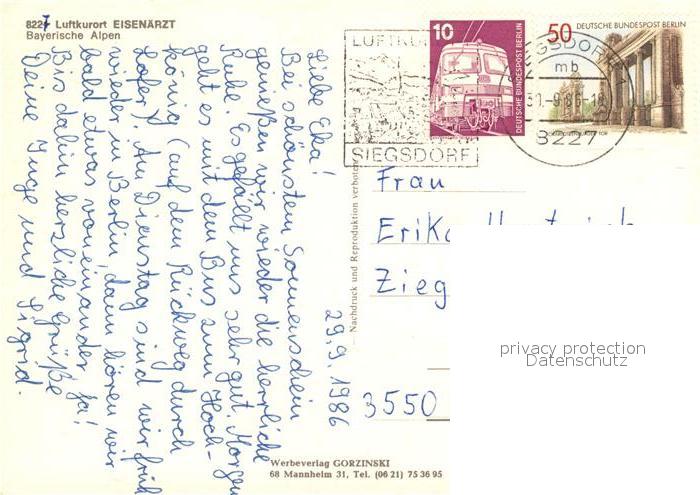 8227 Luftkurort EISENÄRZT
Bayerische Alpen
Liebe Eka!
Bei schönstem Sonnenschein
genießen wir wieder die herrliche
Ruhe. Es gefällt uns sehr gut. Morgen
geht es mit dem Bus zum Hoch-
könig (auf dem Rückweg durch
Lofer). Am Dienstag sind wir früh
wieder in Berlin, dann hören wir
bald etwas voneinander, ja!
Bis dahin herzliche Grüße,
Deine Inge und Sigrid.
29.9.1986
Nachdruck und Reproduktion verboten
LUFTKU
SIEGSDORF
10
DEUTSCHE BUNDESPOST BERLIN
50 DEUTSCHE BUNDESPOST BERLIN
SIEGSDORF
mb
-9.86-18
8227
Frau
Erika
Zieg
3550
privacy protection
Datenschutz
Werbeverlag GORZINSKI
68 Mannheim 31, Tel. (06 21) 75 36 95